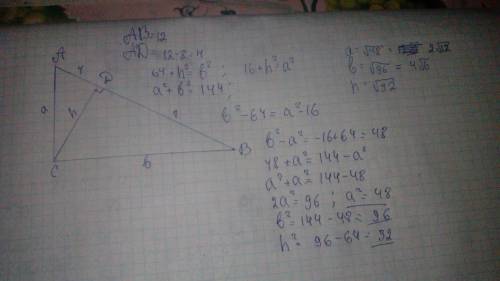 AB=12
AD=12-8=4
64+h²=b² ; 16+h²=a²
a²+b²=144;
b²-64=a²-16
b²-a²=-16+64=48
48+a²=144-a²
a²+a²=144-48
2a²=96 ; a²=48
b²=144-48=96
h²=96-64=32
a=√48=
b=√96=4√6
h=√32
A
4
D
a
h
8
B
C
b